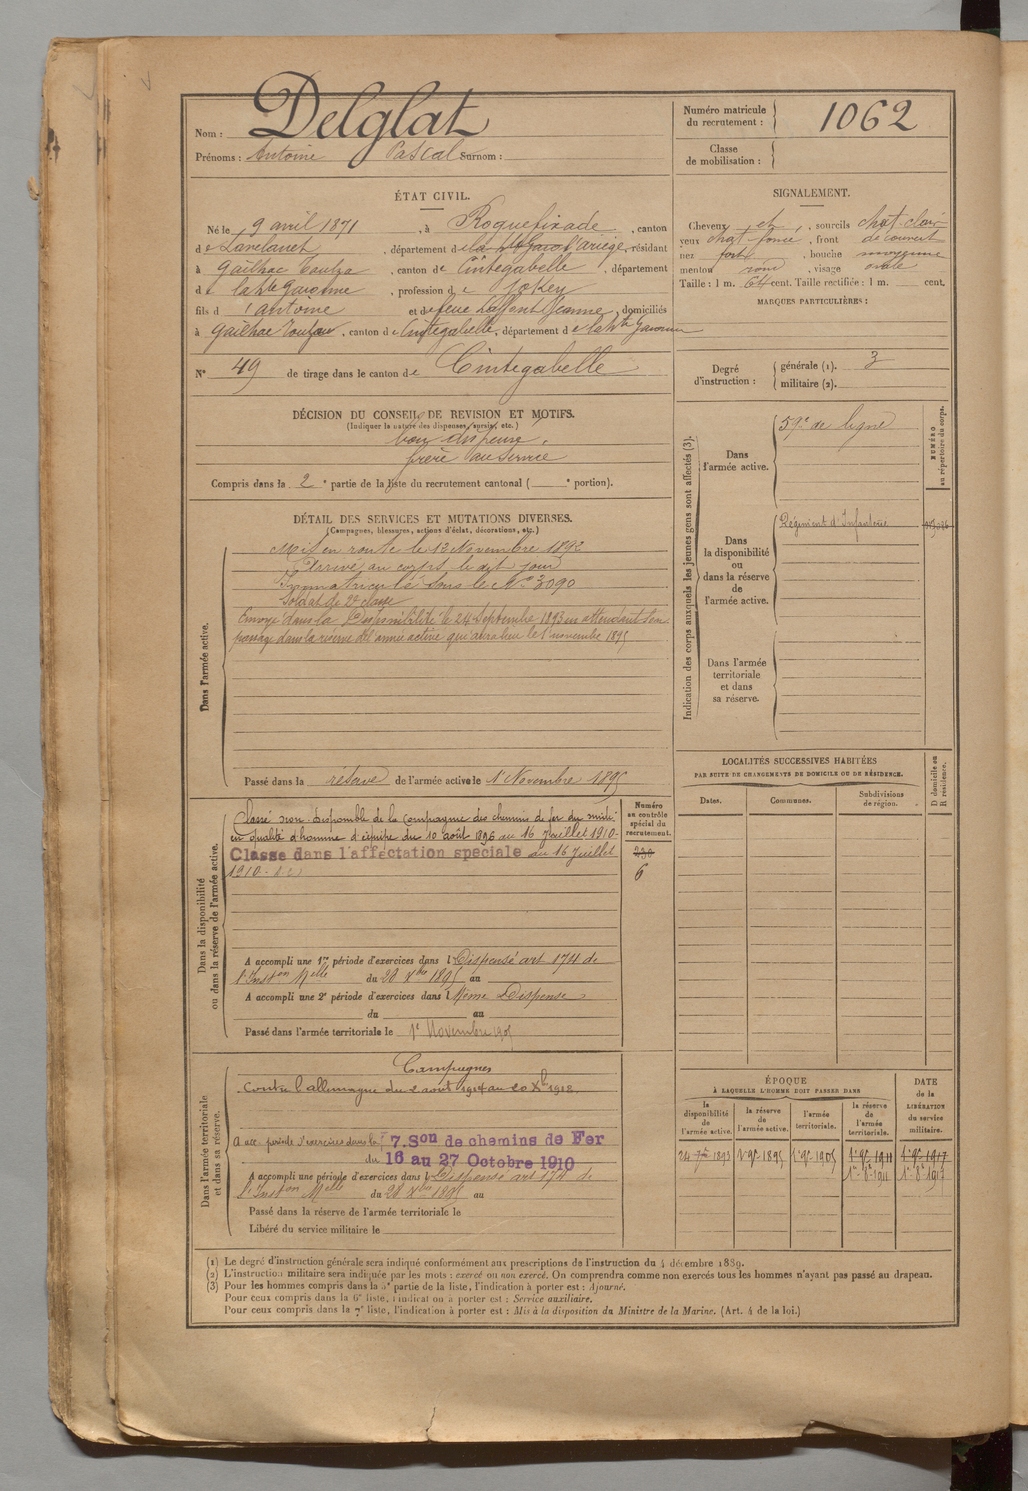 Nom : Delglat
Prénoms : Antoine Pascal Surnom :
Numéro matricule du recrutement : 1062
Classe de mobilisation :
ÉTAT CIVIL.
Né le 9 avril 1871, à Roquefixade, canton
de Lavelanet, département de l'ariège, résidant
à Gailhac Toulza, canton de Cintegabelle, département
de la hte Garonne, profession de Jokey
fils d'antoine et de feue Laffont Jeanne, domiciliés
à Gailhac Toulza, canton de Cintegabelle, département de la hte Garonne
N° 49 de tirage dans le canton de Cintegabelle
SIGNALEMENT.
Cheveux et, sourcils chat-clair
yeux chat foncé, front découvert
nez fort, bouche moyenne
menton rond, visage ovale
Taille : 1 m. 64 cent. Taille rectifiée : 1 m. cent.
MARQUES PARTICULIÈRES :
Degré d'instruction : générale (1). 3
militaire (2).
DÉCISION DU CONSEIL DE REVISION ET MOTIFS.
(Indiquer la nature des dispenses, sursis, etc.)
bon dispensé,
frère au service
Compris dans la 2e partie de la liste du recrutement cantonal ( e portion).
DÉTAIL DES SERVICES ET MUTATIONS DIVERSES.
(Campagnes, blessures, actions d'éclat, décorations, etc.)
Dans l'armée active.
Mis en route le 13 Novembre 1892
Arrivé au corps le dit jour
Immatriculé sous le No 3090
Soldat de 2e classe
Envoyé dans la Disponibilité le 24 Septembre 1893 en attendant son
passage dans la réserve de l'armée active qui aura lieu le 1 novembre 1895
Passé dans la réserve de l'armée active le 1 Novembre 1895
Indication des corps auxquels les jeunes gens sont affectés (3).
NUMÉRO au répertoire du corps.
Dans l'armée active. 59e de ligne
Dans la disponibilité ou dans la réserve de l'armée active. Régiment d'Infanterie
Dans l'armée territoriale et dans sa réserve.
LOCALITÉS SUCCESSIVES HABITÉES
PAR SUITE DE CHANGEMENTS DE DOMICILE OU DE RÉSIDENCE.
Dates. Communes. Subdivisions de région. D domicile ou R résidence.
Dans la disponibilité ou dans la réserve de l'armée active.
Numéro au contrôle spécial du recrutement.
230
6
Classé non-disponible de la Compagnie des chemins de fer du midi
en qualité d'homme d'équipe du 10 août 1896 au 16 Juillet 1910-
Classé dans l'affectation spéciale au 16 Juillet
1910-
A accompli une 1re période d'exercices dans l Dispensé art 174 de
l'Inston Melle du 28 Xbre 1895 au
A accompli une 2e période d'exercices dans l Même Dispense
du au
Passé dans l'armée territoriale le 1er Novembre 1905
Dans l'armée territoriale et dans sa réserve.
Campagnes
Contre l'allemagne du 2 aout 1914 au 20 Xbre 1918.
A acc. période d'exercices dans la 7.Son de chemins de Fer
du 16 au 27 Octobre 1910
A accompli une période d'exercices dans l Dispensé art 174 de
l'Inston Melle du 28 Xbre 1895 au
Passé dans la réserve de l'armée territoriale le
Libéré du service militaire le
ÉPOQUE
À LAQUELLE L'HOMME DOIT PASSER DANS
la disponibilité de l'armée active. la réserve de l'armée active. l'armée territoriale. la réserve de l'armée territoriale.
DATE de la LIBÉRATION du service militaire.
24 7bre 1893 1 9bre 1895 1 9bre 1905 1 9bre 1911 1 9bre 1917
(1) Le degré d'instruction générale sera indiqué conformément aux prescriptions de l'instruction du 4 décembre 1889.
(2) L'instruction militaire sera indiquée par les mots : exercé ou non exercé. On comprendra comme non exercés tous les hommes n'ayant pas passé au drapeau.
(3) Pour les hommes compris dans la 5e partie de la liste, l'indication à porter est : Ajourné.
Pour ceux compris dans la 6e liste, l'indication à porter est : Service auxiliaire.
Pour ceux compris dans la 7e liste, l'indication à porter est : Mis à la disposition du Ministre de la Marine. (Art. 4 de la loi.)